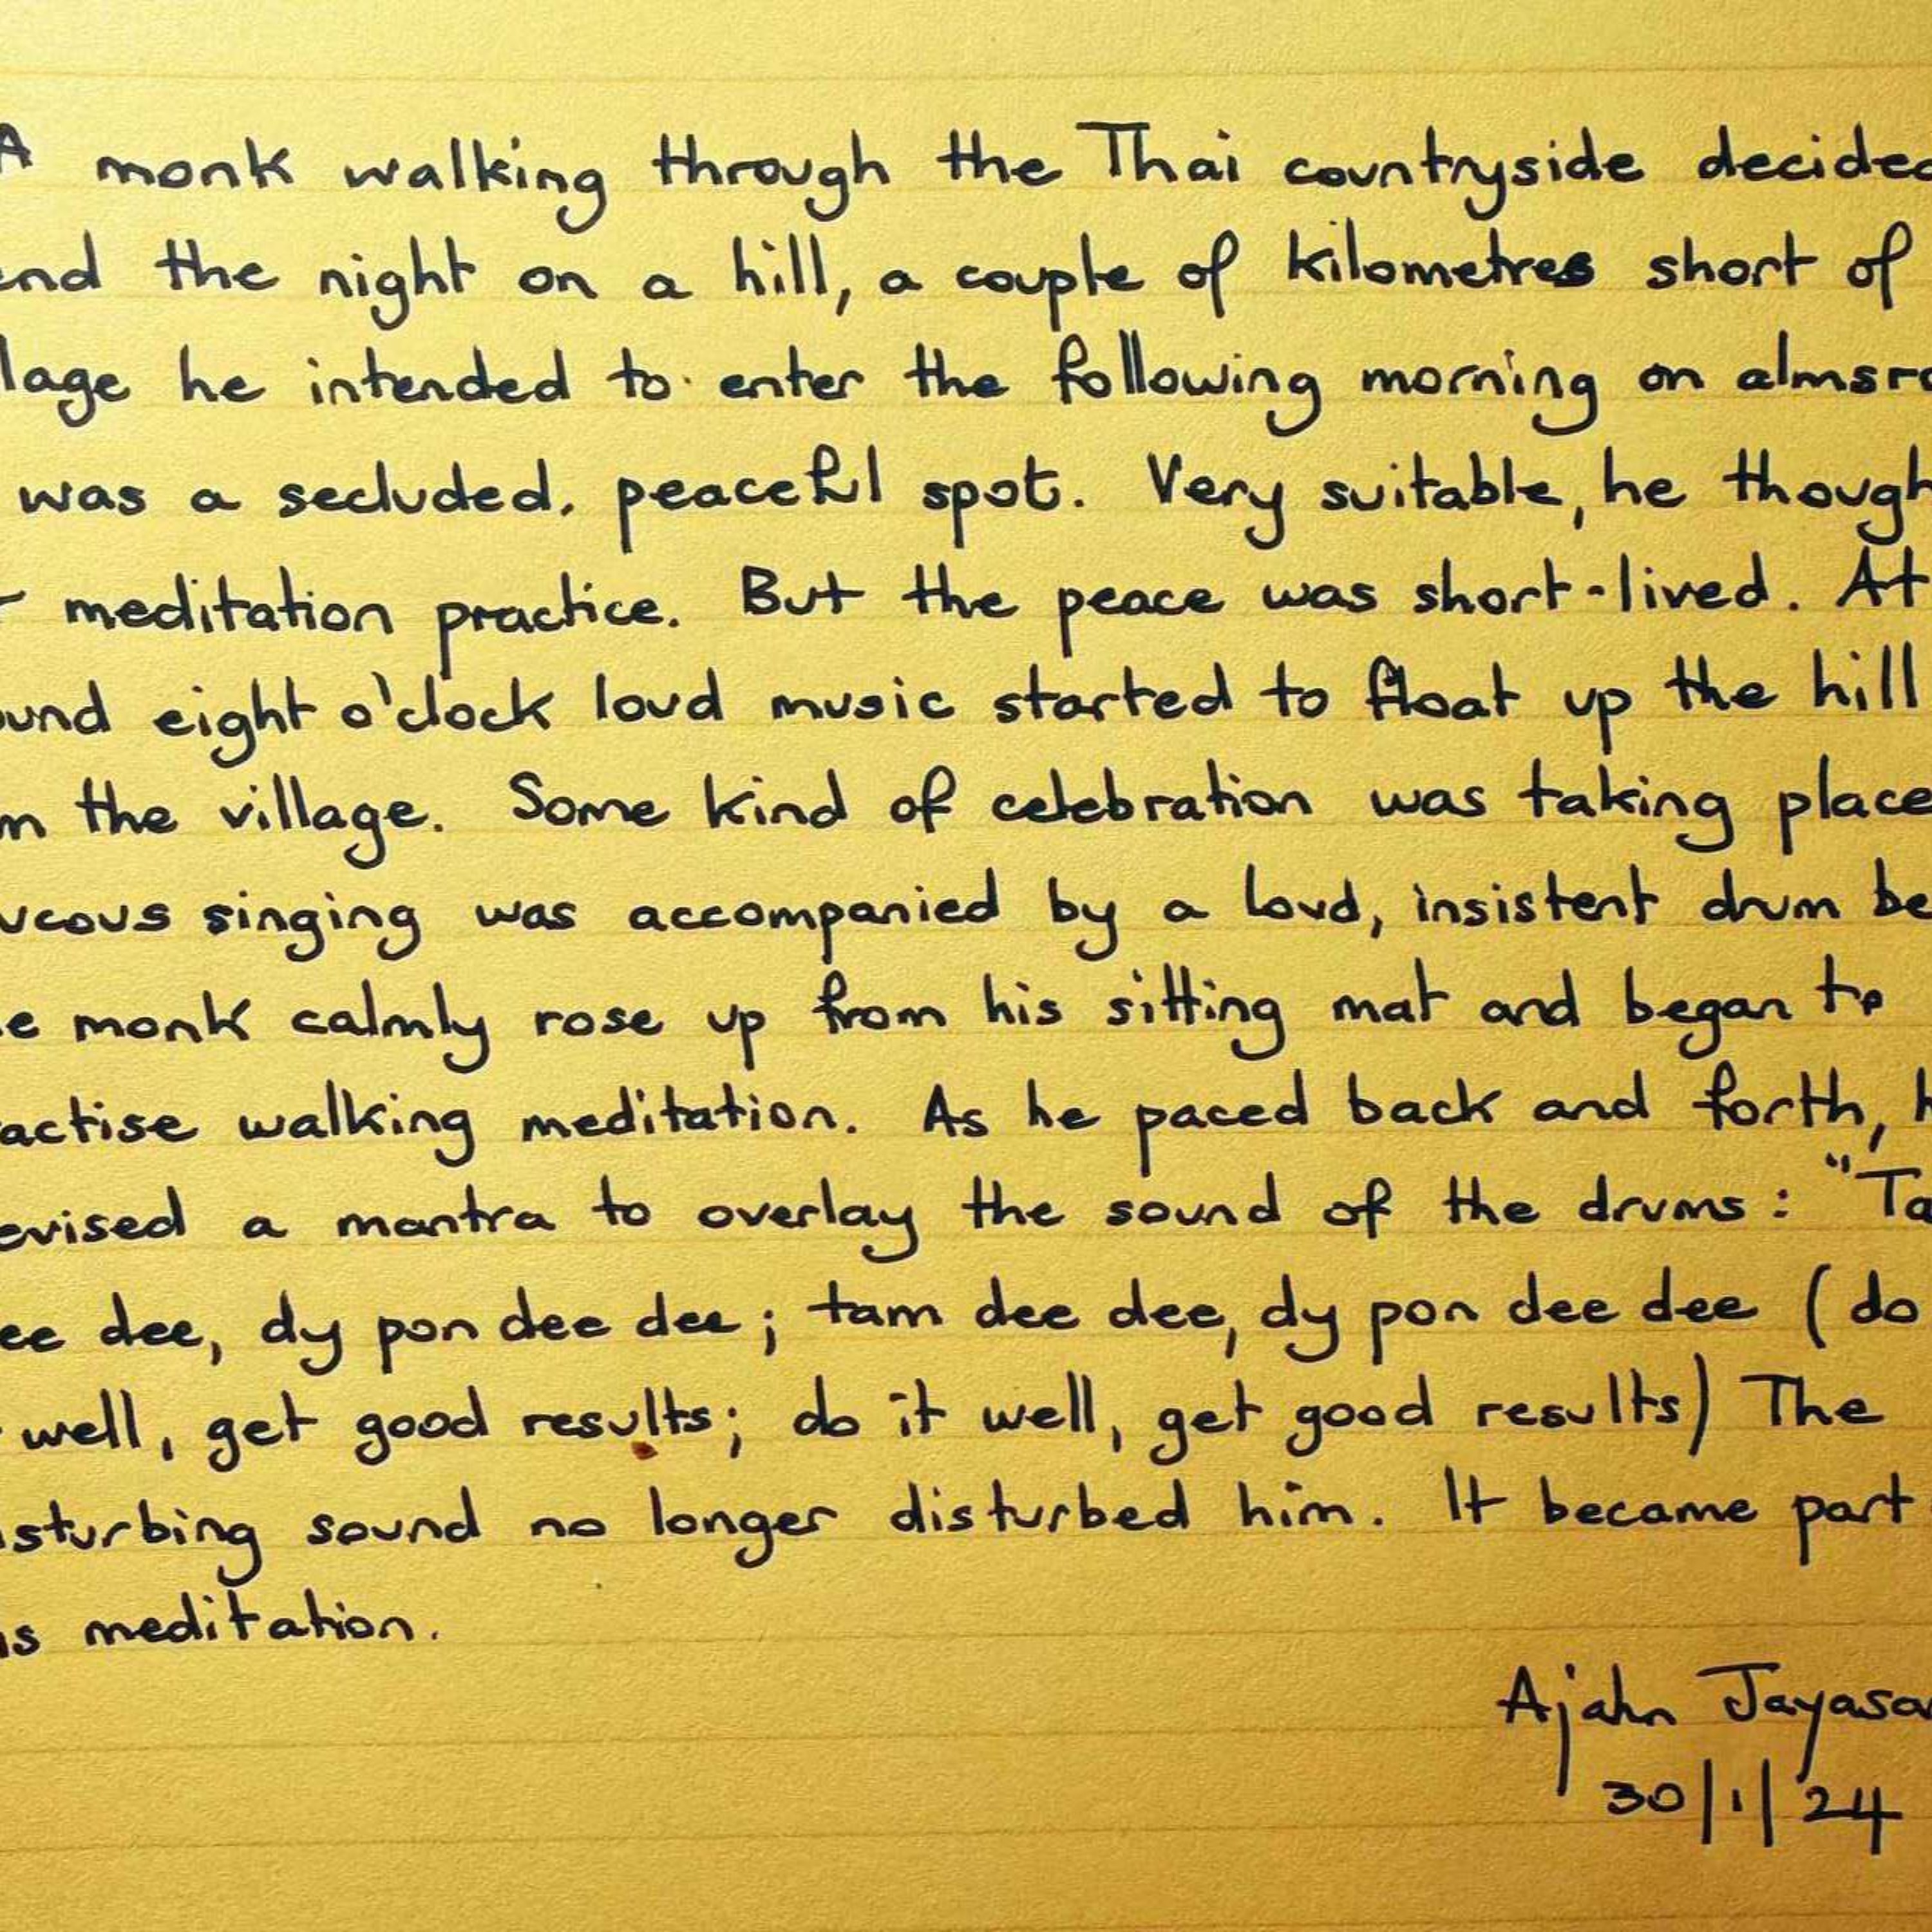 A monk walking through the Thai countryside decided
end the night on a hill, a couple of kilometres short of
lage he intended to enter the following morning on almsro
was a secluded, peaceful spot. Very suitable, he though
r meditation practice. But the peace was short-lived. At
und eight o'clock loud music started to float up the hill
m the village. Some kind of celebration was taking place
ucous singing was accompanied by a loud, insistent drum be
e monk calmly rose up from his sitting mat and began to
actise walking meditation. As he paced back and forth, h
evised a mantra to overlay the sound of the drums: "Ta
ee dee, dy pon dee dee; tam dee dee, dy pon dee dee (do
well, get good results; do it well, get good results) The
isturbing sound no longer disturbed him. It became part
is meditation.
Ajahn Jayasa
30/1/24